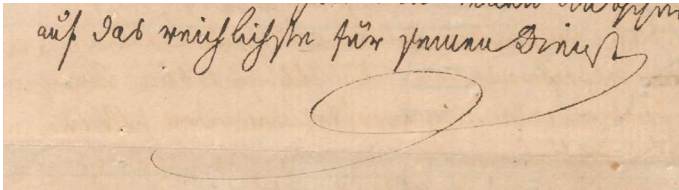 auf das reichlichste für seinen Dienst